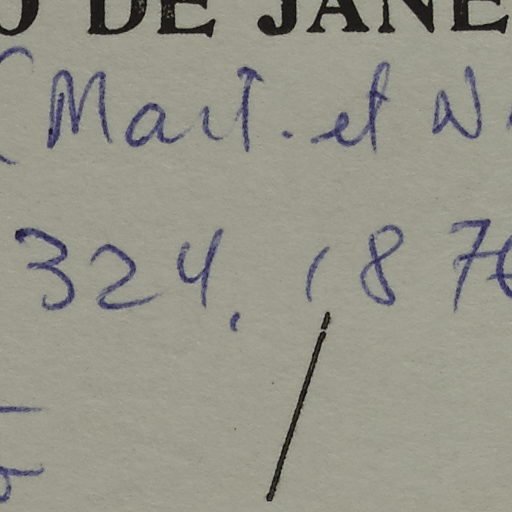 O DE JANE
(Mart. et N
324, 1876